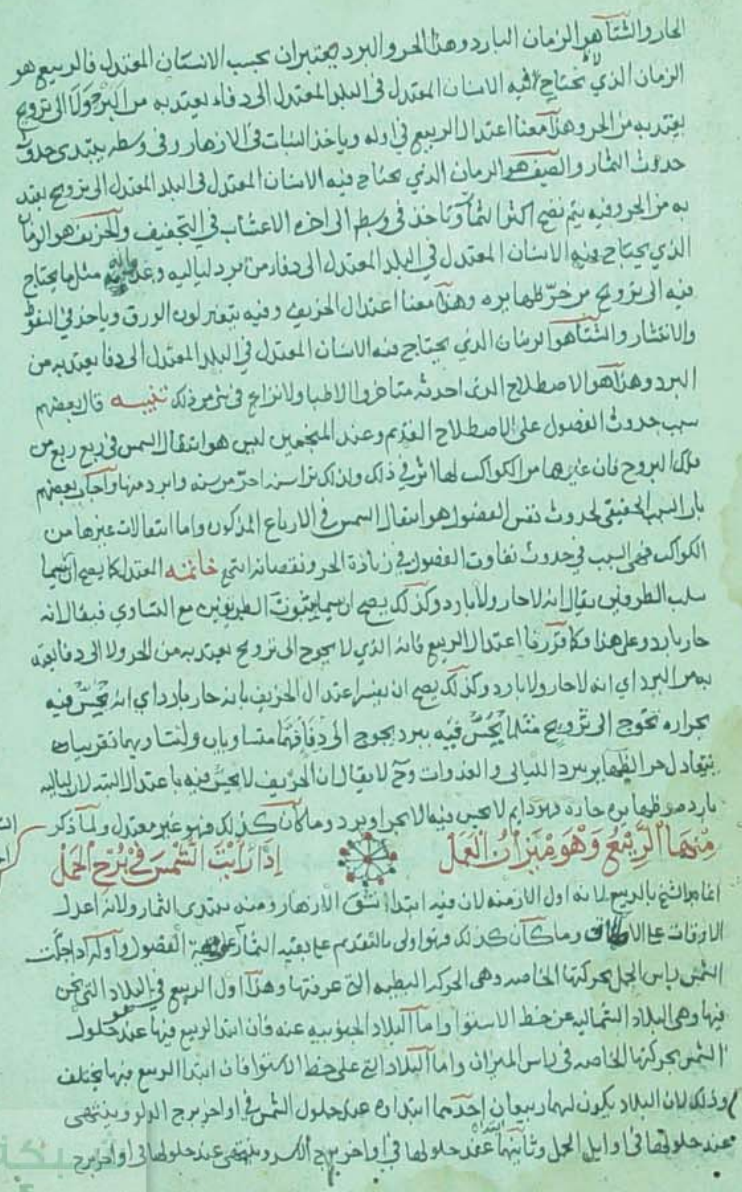 الحار والشتا هو الزمان البارد وهذا الحر والبرد يعتبران بحسب الانسان المعتدل فالربيع هو
الزمان الذي لا يحتاج فيه الانسان المعتدل في البلد المعتدل الى دفاء يعتد به من البرد ولا الى ترويح
يعتد به من الحر وهذا معنا اعتدال الربيع في اوله وياخذ النبات في الازهار وفي وسطه يبتدي حدوث
حدوث الثمار والصيف هو الزمان الذي يحتاج فيه الانسان المعتدل في البلد المعتدل الى ترويح يعتد
به من الحر وفيه يتم نضج اكثر الثمار وتاخذ في وسطه الى اخره الاعشاب في التجفيف والخريف هو الزمان
الذي يحتاج فيه الانسان المعتدل في البلد المعتدل الى دفا من برد لياليه مثل ما يحتاج
فيه الى ترويح من حر ظهايره وهذا معنا اعتدال الخريف وفيه يتغير لون الورق وياخذ في
والانتشار والشتا هو الزمان الذي يحتاج فيه الانسان المعتدل في البلد المعتدل الى دفا يعتد به من
البرد وهذا هو الاصطلاح الذي احدثه متاخروا الاطبا ولا نزاع في شي من ذلك تنبيه قال بعضهم
سبب حدوث الفصول على الاصطلاح القديم وعند المنجمين ليس هو انتقال الشمس في ربع ربع من
فلك البروج فان غيرها من الكواكب لها اثر في ذلك ولذلك ترا سنه احر من سنه وابرد منها واجاب بعضهم
بان السبب الحقيقي لحدوث نفس الفصول هو انتقال الشمس في الارباع المذكوره واما انتقالات غيرها من
الكواكب فهي السبب في حدوث تفاوت الفصول في زيادة الحر ونقصانه انتهى خاتمه المعتدل كما يصح ان
بسلب الطرفين يقال انه لا حار ولا بارد وكذلك يصح ان بثبوت الطرفين مع التساوي فيقال انه
حار بارد وعلى هذا اعتدال الربيع فانه الذي لا يحوج الى ترويح يعتد به من الحر ولا الى دفا يعتد
به من البرد اي انه لا حار ولا بارد وكذلك يصح ان يفسر اعتدال الخريف بانه حار بارد اي انه يحس فيه
بحراره تحوج الى ترويح مثلما يحس فيه ببرد يحوج الى دفا فهما متساويان ولتساويهما تقريبا
يتعادل حر الظهاير ببرد الليالي والغدوات وح لا يقال ان الخريف لا يحس فيه باعتدال البته لان لياليه
بارده وظهايره حاره فهو دايم لا يحس فيه الا بحر او ببرد وما كان كذلك فهو غير معتدل ولما ذكر
مِنْهَا الرَّبِيْعُ وَهْوَ مِيْزَانُ الْعَمَلْ إِذَا رَأَيْتَ الشَّمْسَ فِيْ بُرْجِ الْحَمَلْ
انما بالربيع لانه اول الازمنه لان فيه ابتدا تشق الازهار ومنه يبتدى الثمار ولانه اعدل
الاوقات على الاطلاق وما كان كذلك فهو اولى بالتقديم على بقيه الفصول واوله اذا حلت
الشمس براس الحمل بحركتها الخاصه وهي الحركه البطيه التي عرفتها وهذا اول الربيع في البلاد التي نحن
فيها وهي البلاد الشماليه عن خط الاستوا واما البلاد الجنوبيه عنه فان ابتدا الربيع فيها هو عند حلول
الشمس بحركتها الخاصه في راس الميزان واما البلاد التي على خط الاستوا فان ابتدا الربيع فيها يختلف
وذلك لان البلاد يكون لهما ربيعان احدهما ابتداه عند حلول الشمس في اواخر برج الدلو وينتهى
عند حلولها في اوايل الحمل وثانيهما ابتداه عند حلولها في اواخر برج الاسد وينتهى عند حلولها في اواخر برج